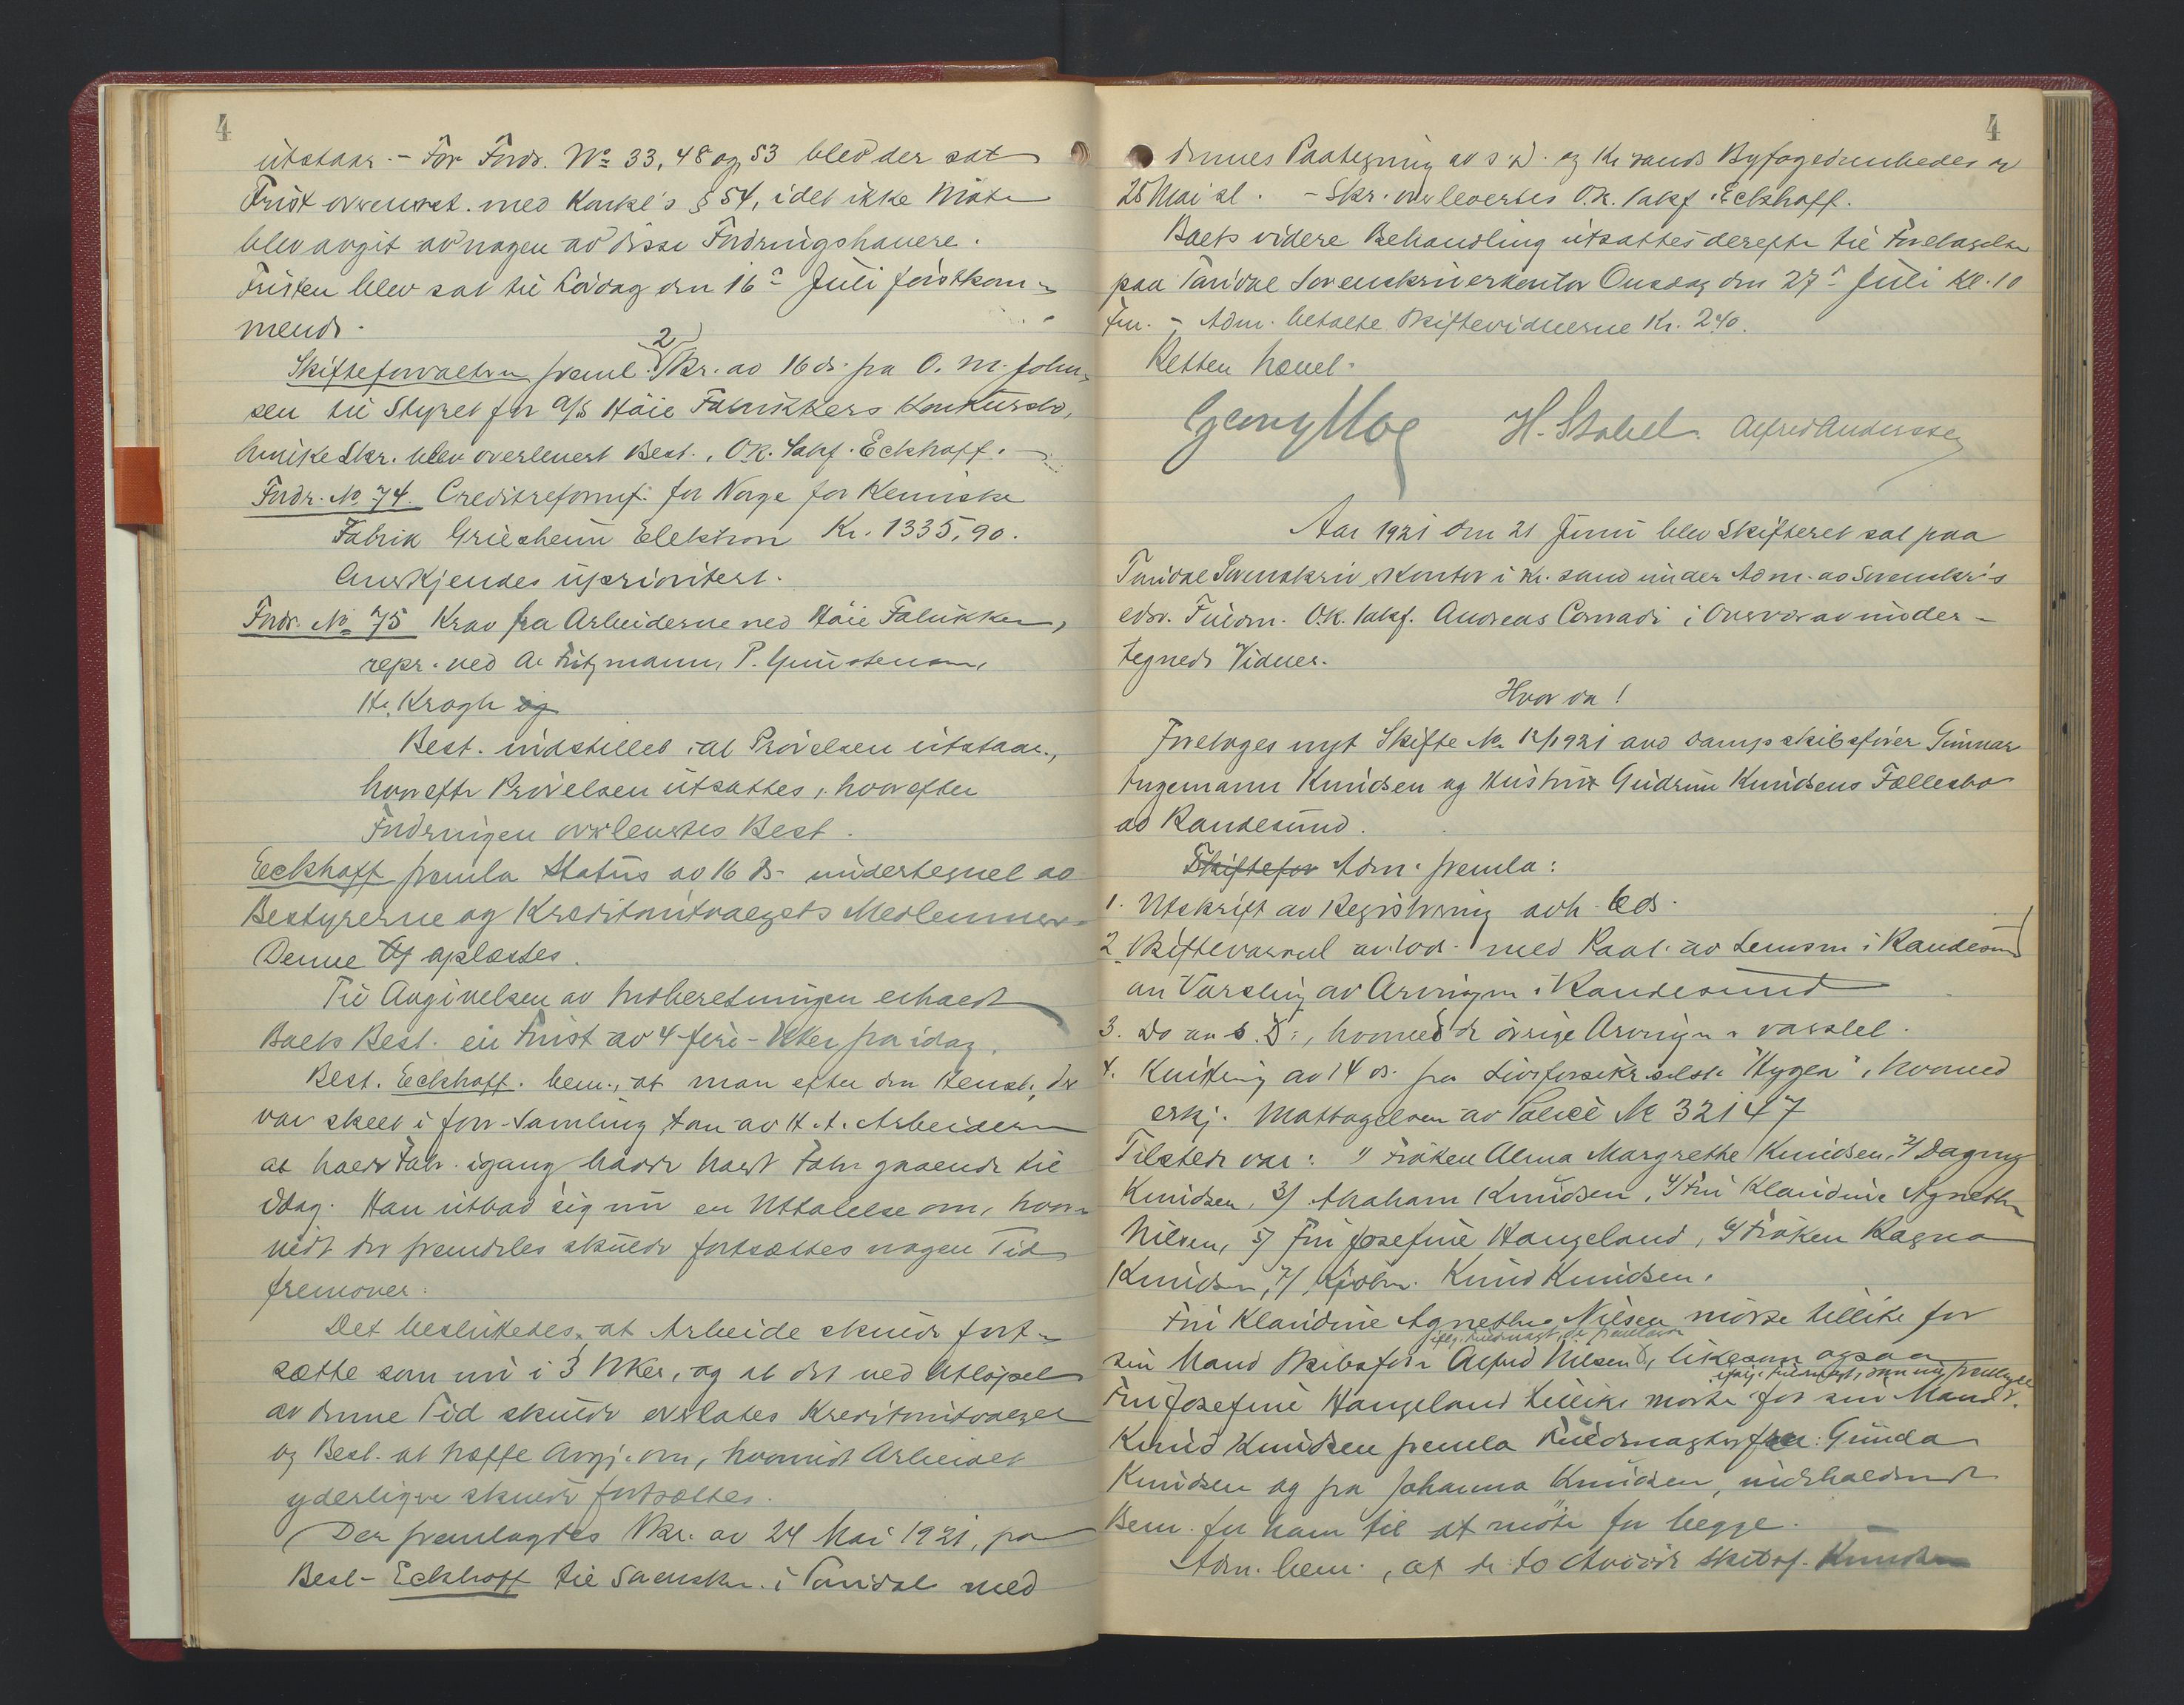 4
utstaar. - For Fordr. No 33, 48 og 53 blev der sat
Frist overensst. med Konksl's § 54, idet ikke Møte
blev avgit av nogen av disse Fordringshavere.
Fristen blev sat til Lørdag den 16de Juli førstkom-
mende.
Skifteforvalteren freml. 2) Skr. av 16 ds. fra O. M. John-
sen til Styret for A/S Høie Fabrikkers Konkursbo,
hvilke Skr. blev overlevert Best., O.R. Sakf. Eckhoff.
Fordr. No 74. Creditreform f. for Norge for Kemiske
Fabrik Griesheim Elektron Kr. 1335,90.
Anerkjendes uprioritert.
Fordr. No 75 Krav fra Arbeiderne ved Høie Fabrikker,
repr. ved A. Fritzmann, P. Gunstensen,
H. Krogh og
Best. indstillet at Prøvelsen utstaar,
hvorefter Prøvelsen utsattes, hvorefter
Fordringen overlevertes Best.
Eckhoff fremla Status av 16 ds. undertegnet av
Bestyrerne og Kreditorutvalgets Medlemmer.
Denne oplæstes.
Til Avgivelsen av Indberetningen erholdt
Boets Best. en Frist av 4-fire-Uker fra idag.
Best. Eckhoff. bem., at man efter den Henst., der
var skeet i forr. Samling fra av H. F. Arbeidere
at holde Fabr. igang hadde holdt Fabr. gaaende til
idag. Han utbad sig nu en Uttalelse om, hvor-
vidt der fremdeles skulde fortsættes nogen Tid
fremover.
Det besluttedes, at Arbeide skulde fort-
sætte som nu i 3 Uker, og at det ved Utløpet
av denne Tid skulde overlates Kreditorutvalget
og Best. at træffe Avgj. om, hvorvidt Arbeidet
yderligere skulde fortsættes.
Der fremlagdes Skr. av 24 Mai 1921, fra
Best. Eckhoff til Sorenskr. i Torridal med
4
dennes Paategning av s. D. og Kr.sands Byfogedembedes av
25 Mai sl. - Skr. overlevertes O.R. Sakf. Eckhoff.
Boets videre Behandling utsattes derefter til Foretagelse
paa Torridal Sorenskriverkontor Onsdag den 27de Juli Kl. 10
Fm. - Adm. betalte Skiftevidnerne Kr. 2.40.
Retten hævet.
Georg Moe H. Stabel. Alfred Anderssen
Aar 1921 den 21 Juni blev Skifteret sat paa
Torridal Sorenskriverkontor i Kr.sand under Adm. av Sorenskr's
edsv. Fuldm. O.R. Sakf. Andreas Conradi i Overvær av under-
tegnede Vidner.
Hvor da!
Foretoges nyt Skifte No 12/1921 avd dampskibsfører Gunnar
Ingemann Knudsen og Hustru Gudrun Knudsens Fællesbo
av Randesund.
Skiftefor Adm. fremla:
1. Utskrift av Registrering avh. 6 ds.
2. Skiftevarsel av 10 ds. med Paat. av Lensm. i Randesund
an Varsling av Arvingen i Randesund
3. Do av s. D., hvorved de øvrige Arvinger er varslet.
4. Kvittering av 14 ds. fra Livsforsikr.selsk. "Hygea", hvorved
erkj. Mottagelsen av Police No 32147
Tilstede var: 1) Frøken Alma Margrethe Knudsen, 2) Dagny
Knudsen, 3) Abraham Knudsen, 4) Fru Klaudine Agnethe
Nilsen, 5) Fru Josefine Haugeland, 6) Frøken Ragna
Knudsen, 7) Kjøbm. Knud Knudsen.
Fru Klaudine Agnethe Nilsen møtte tillike for
iflg. Fuldmagt, de fremlagde
sin Mand Skibsfører Alfred Nilsen, likesom ogsaa
iflg. Fuldmagt, som nu fremlagdes
Fru Josefine Haugeland tillike møtte for sin Mand.
Knud Knudsen fremla Fuldmagter fra: Gunda
Knudsen og fra Johanna Knudsen, indeholdende
Bem. for ham til at møte for begge.
Adm. bem., at de to Avdøde Skibsf. Knudsen